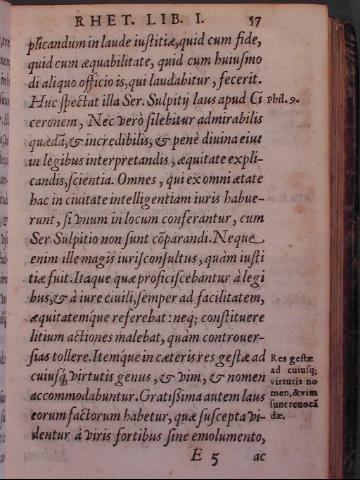 RHET. LIB. I. 57
plicandum in laude iustitiæ, quid cum fide,
quid cum æquabilitate, quid cum huiusmo
di aliquo officio is, qui laudabitur, fecerit.
Huc spectat illa Ser. Sulpitij laus apud Ci
Phil. 9.
ceronem, Nec verò silebitur admirabilis
quædã, & incredibilis, & penè diuina eius
in legibus interpretandis, æquitate expli
candis, scientia. Omnes, qui ex omni ætate
hac in ciuitate intelligentiam iuris habue-
runt, si vnum in locum conferantur, cum
Ser. Sulpitio non sunt cõparandi. Neque
enim ille magis iurisconsultus, quàm iusti
tiæ fuit. Itaque quæ proficiscebantur à legi
bus, & à iure ciuili, semper ad facilitatem,
æquitatemque referebat: neq; constituere
litium actiones malebat, quàm controuer-
sias tollere. Itemque in cæteris res gestæ ad
cuiusq; virtutis genus, & vim, & nomen
accommodabuntur. Gratissima autem laus
eorum factorum habetur, quæ suscepta vi-
dentur à viris fortibus sine emolumento,
Res gestæ
ad cuiusq;
virtutis no
men, & vim
sunt reuocã
dæ.
E 5 ac